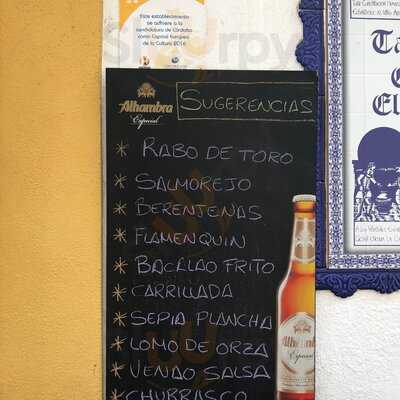 Este establecimiento
se adhiere a la
candidatura de Córdoba
como Capital Europea
de la Cultura 2016
Alhambra
Especial
SUGERENCIAS
* RABO DE TORO
* SALMOREJO
* BERENJENAS
* FLAMENQUIN
* BACALAO FRITO
* CARRILLADA
* SEPIA PLANCHA
* LOMO DE ORZA
* VENAO SALSA
* CHURRASCO
Alhambra
Especial
Ta
El